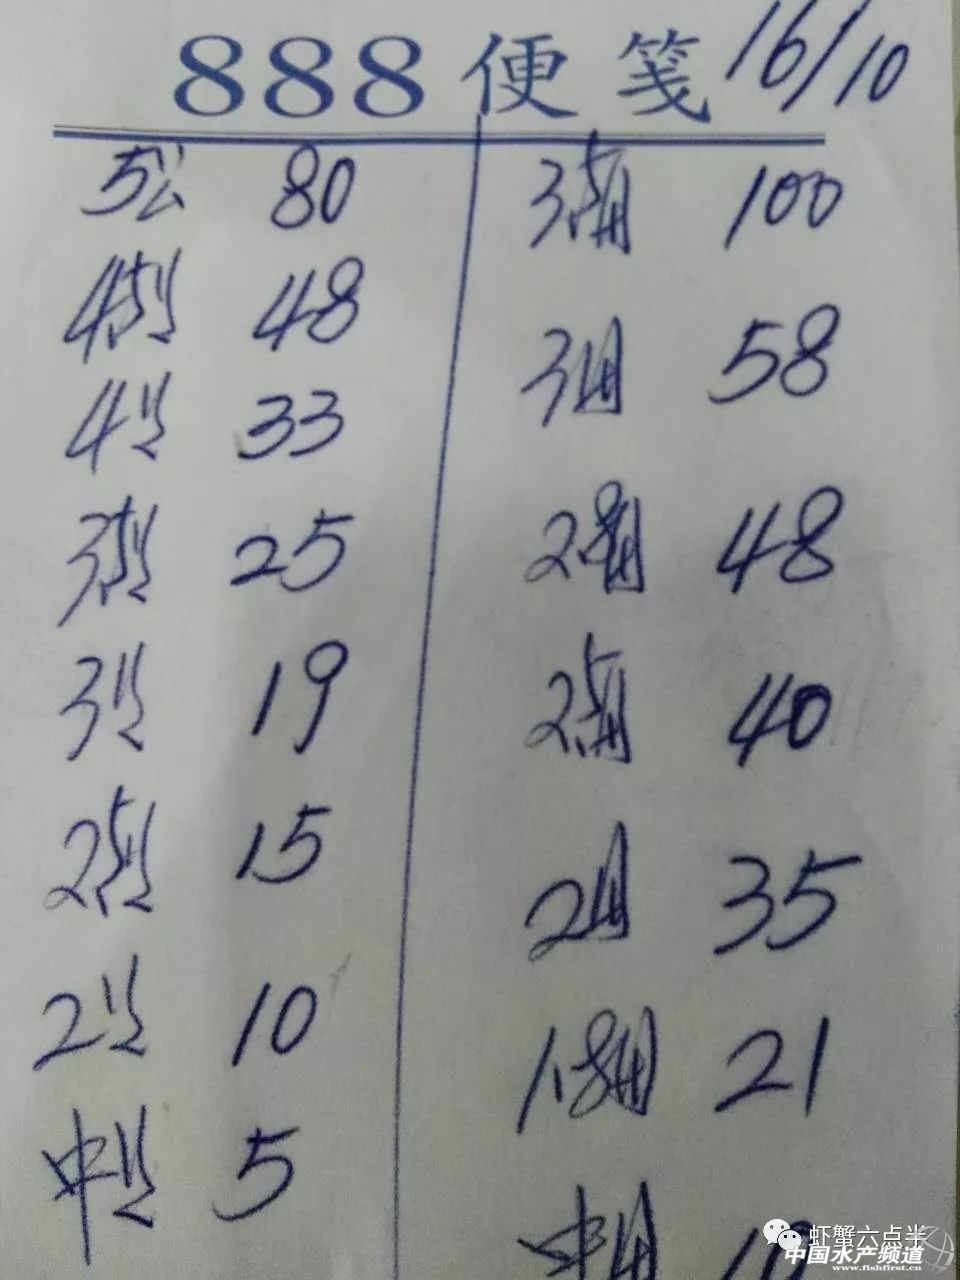 888便笺 16/10
5公 80
4.5公 48
4公 33
3.5公 25
3公 19
2.5公 15
2公 10
中公 5
3.5母 100
3母 58
2.8母 48
2.5母 40
2母 35
1.8母 21
中母
虾蟹六点半
中国水产频道
www.fishfirst.cn